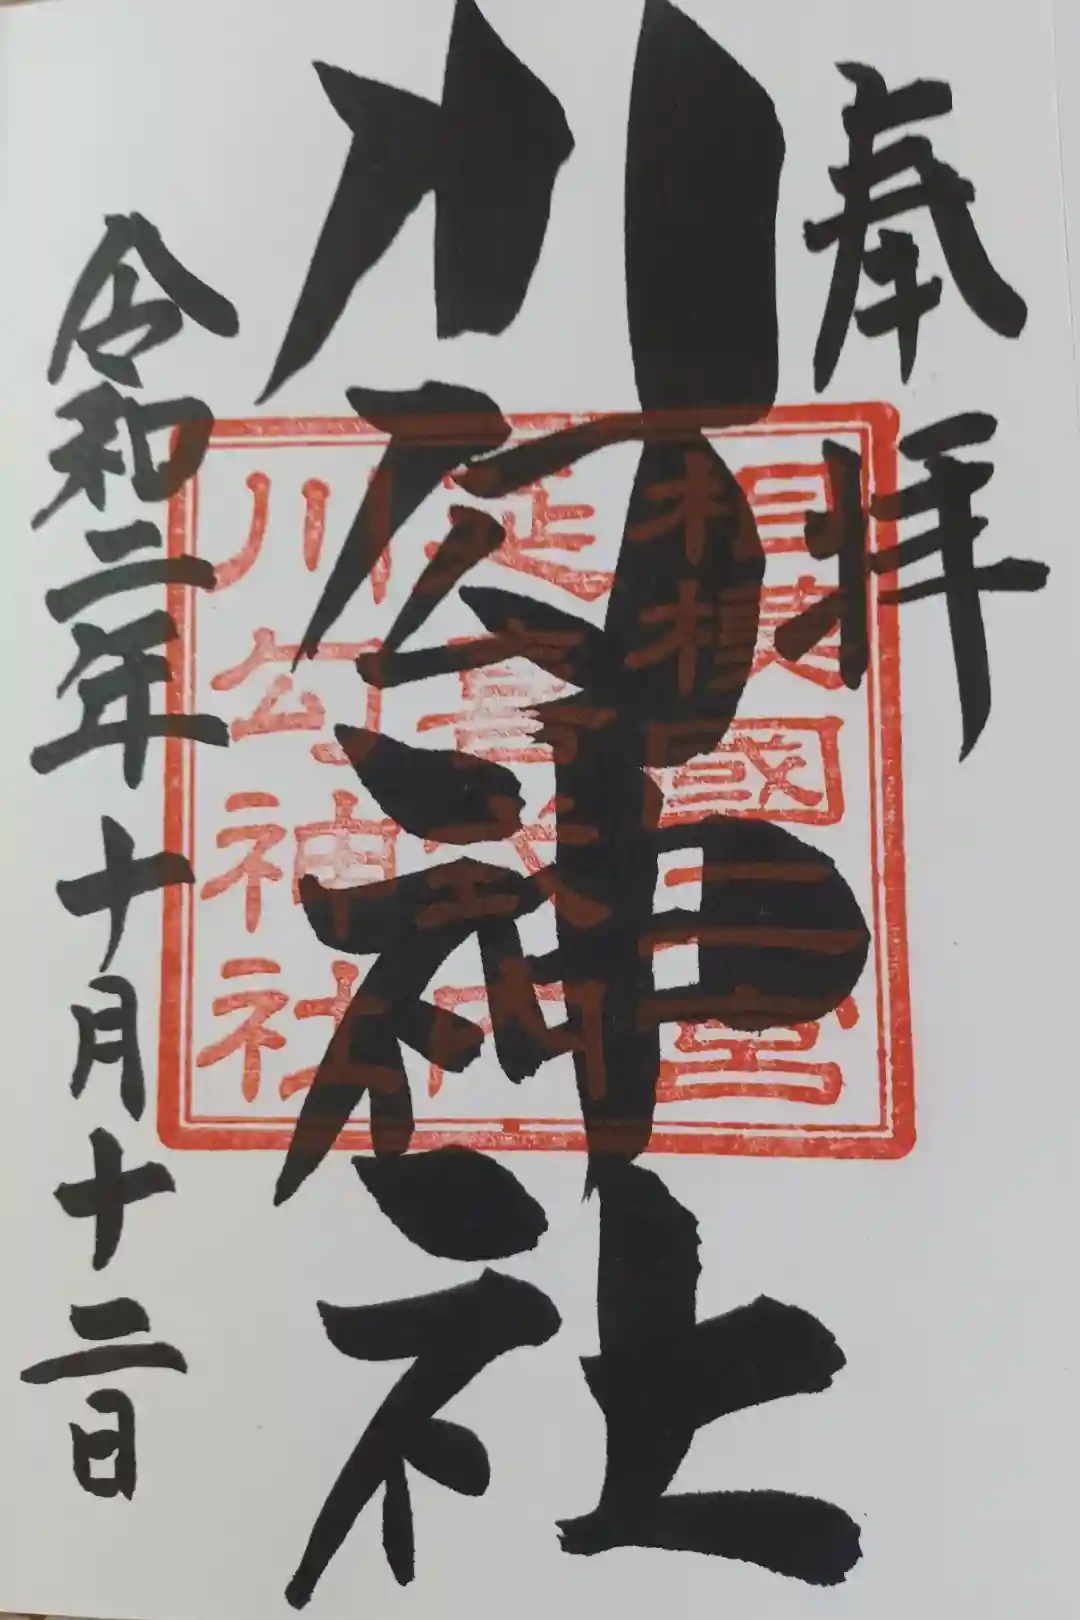 奉拝
川匂神社
相模國二宮
延喜式内
川勾神社
令和二年十月十二日